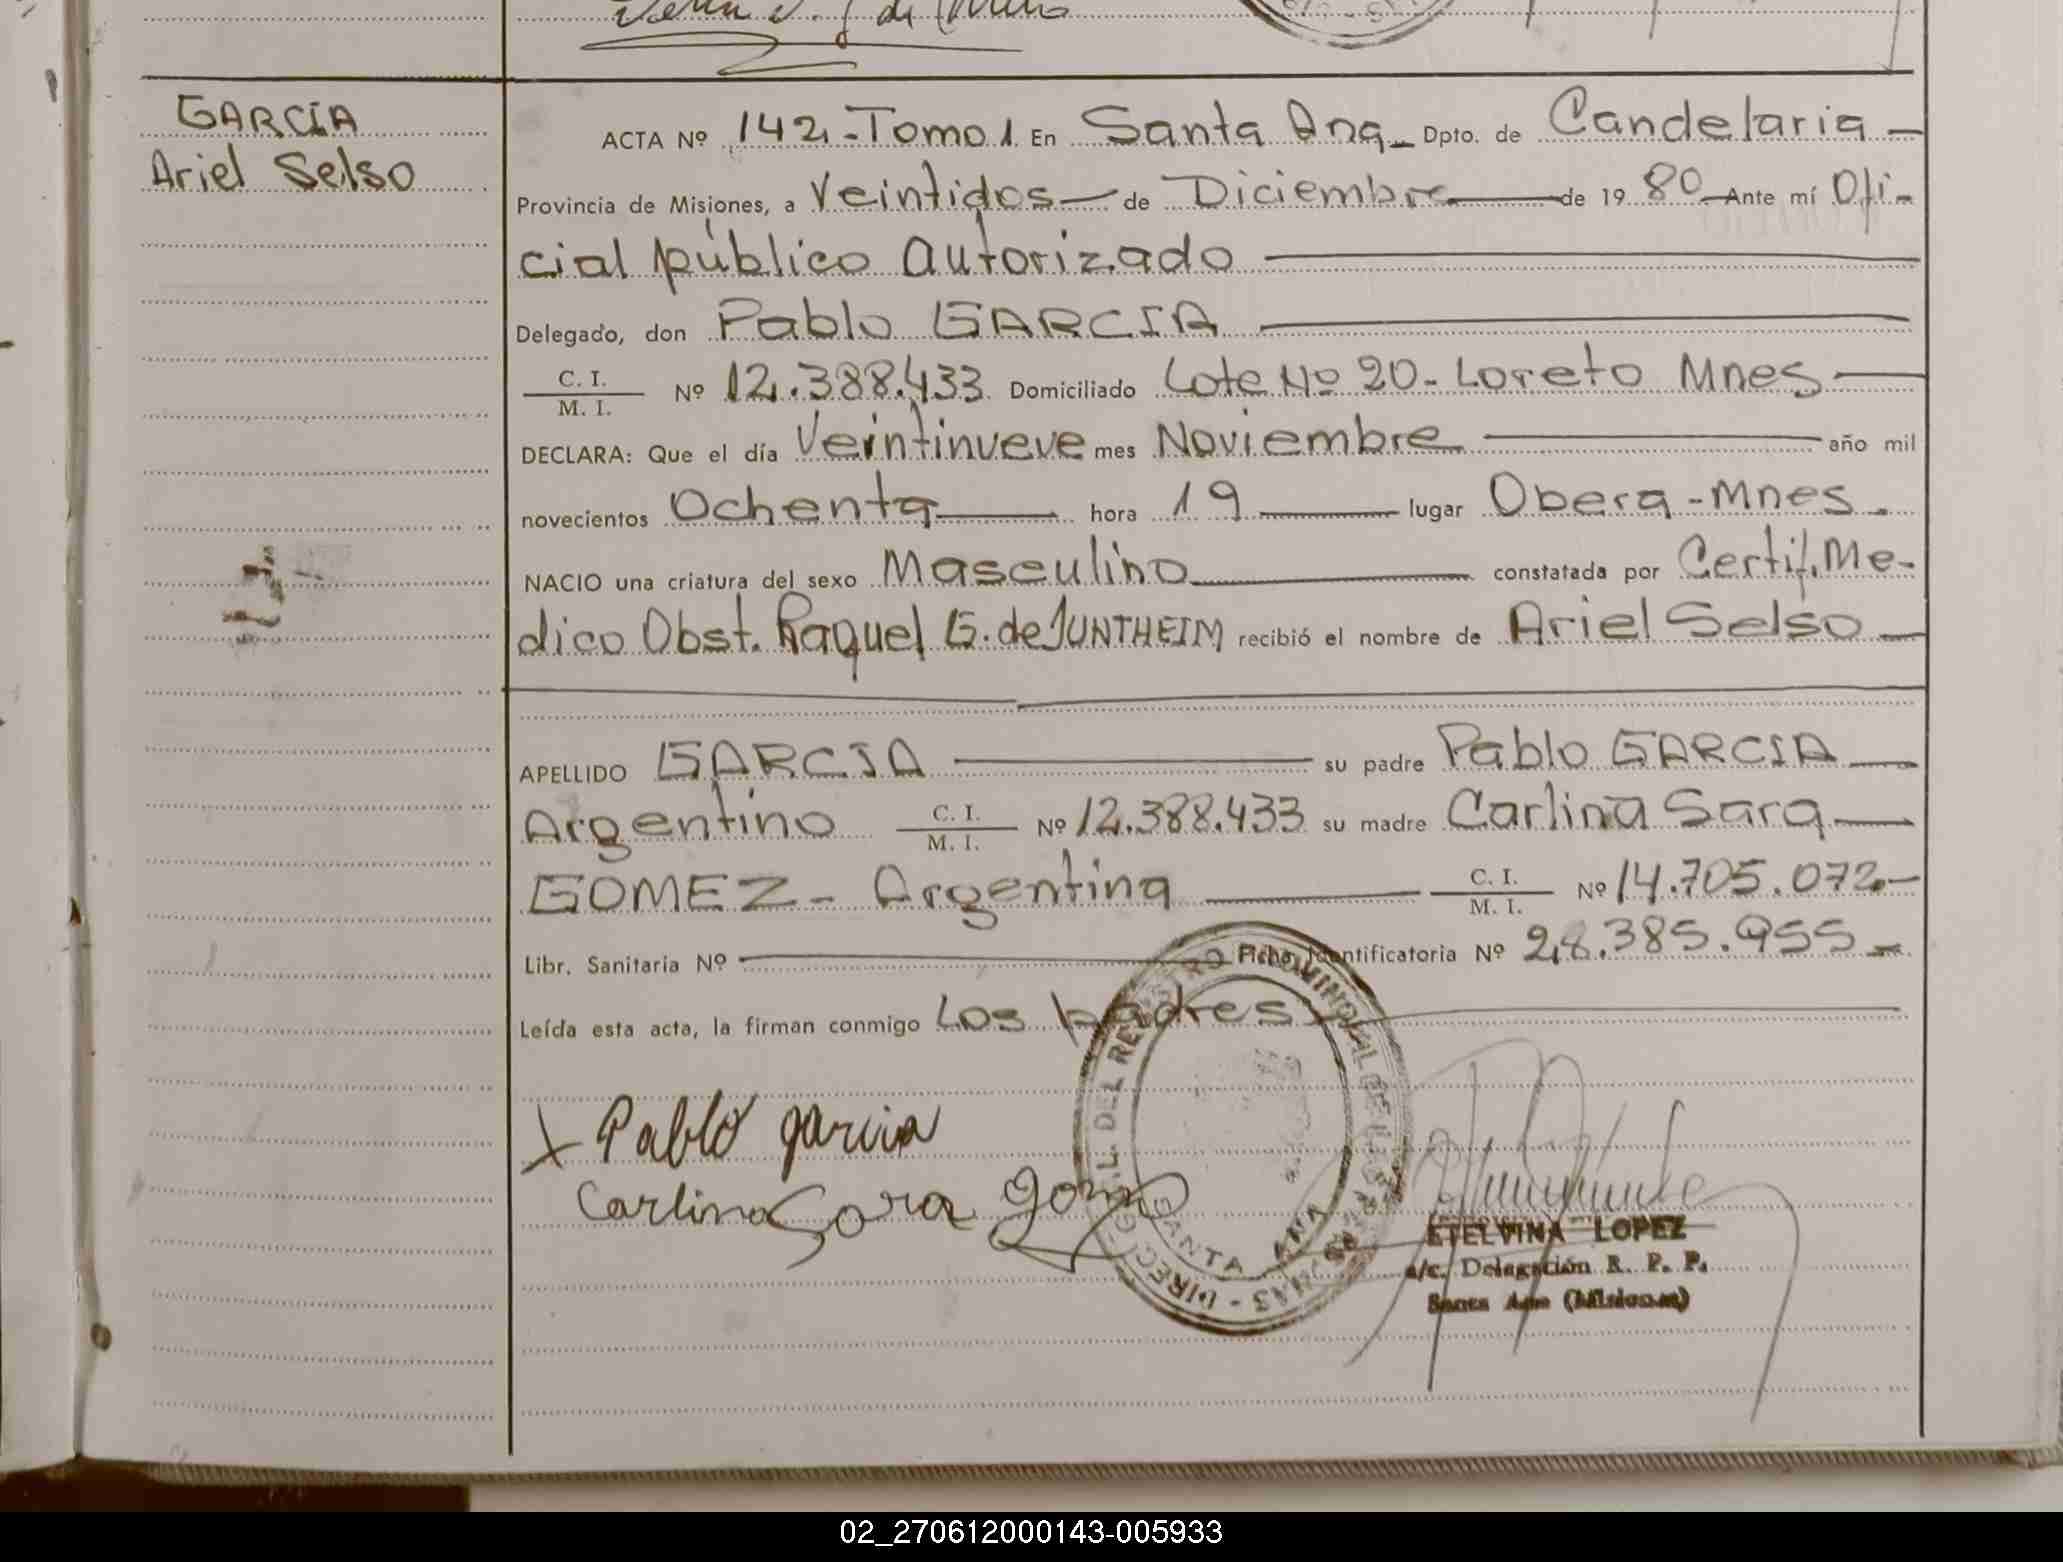 GARCÍA
Ariel Selso
ACTA Nº 142 - Tomo 1. En Santa Ana - Dpto. de Candelaria -
Provincia de Misiones, a Veintidos - de Diciembre - de 1980 - Ante mí Ofi-
cial público Autorizado
Delegado, don Pablo GARCIA
C. I.
M. I. Nº 12.388.433 Domiciliado Lote Nº 20 - Loreto Mnes -
DECLARA: Que el día Veintinueve mes Noviembre año mil
novecientos Ochenta hora 19 lugar Obera - Mnes.
NACIO una criatura del sexo Masculino constatada por Certif. Me-
dico Obst. Raquel G. de JUNTHEIM recibió el nombre de Ariel Selso
APELLIDO GARCIA su padre Pablo GARCIA
Argentino C. I.
M. I. Nº 12.388.433 su madre Carlina Sara
GOMEZ - Argentina C. I.
M. I. Nº 14.705.072 -
Libr. Sanitaria Nº Ficha Identificatoria Nº 28.385.955 -
Leída esta acta, la firman conmigo Los padres
X Pablo garcia
Carlina Sara
DIREC. GRAL. DEL REGISTRO PROVINCIAL DE LAS PERSONAS
SANTA ANA
ETELVINA LOPEZ
a/c. Delegación R. P. P.
Santa Ana (Misiones)
02_270612000143-005933